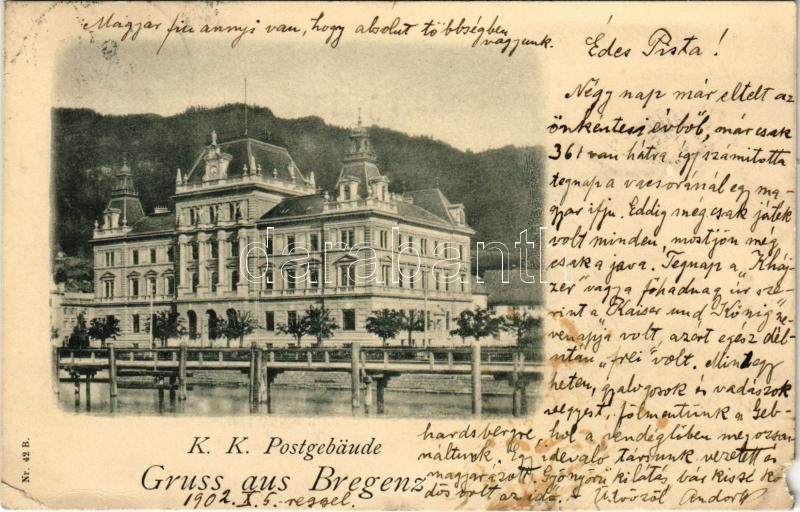 Magyar fiu annyi van, hogy absolut többségben
vagyunk.
Édes Pista!
Négy nap már eltelt az
önkéntesi évből, már csak
361 van hátra, így számitotta
tegnap a vacsoránál egy ma-
gyar ifju. Eddig még csak játék
volt minden, mostjön még
csak a java. Tegnap a „Kháj-
zer" vagy a főhadnagy úr sze-
rint a „Kaiser und König" ne-
venapja volt, azért egész dél-
után „frei" volt. Mint egy
heten, gyalogosok és vadászok
vegyest, fölmentünk a Geb-
hardsbergre, hol a vendéglőben megozson-
náltunk. Egy idevaló társunk vezetett és
magyarázott. Gyönyörü kilátás, bár kissé kö-
dös volt az idő. Üdvözöl Andor
K. K. Postgebäude
Gruss aus Bregenz
1902. X. 5. reggel.
Nr. 42 B.
darabanth.com